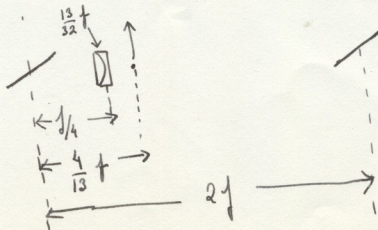 13/32 f
f/4
4/13 f
2f